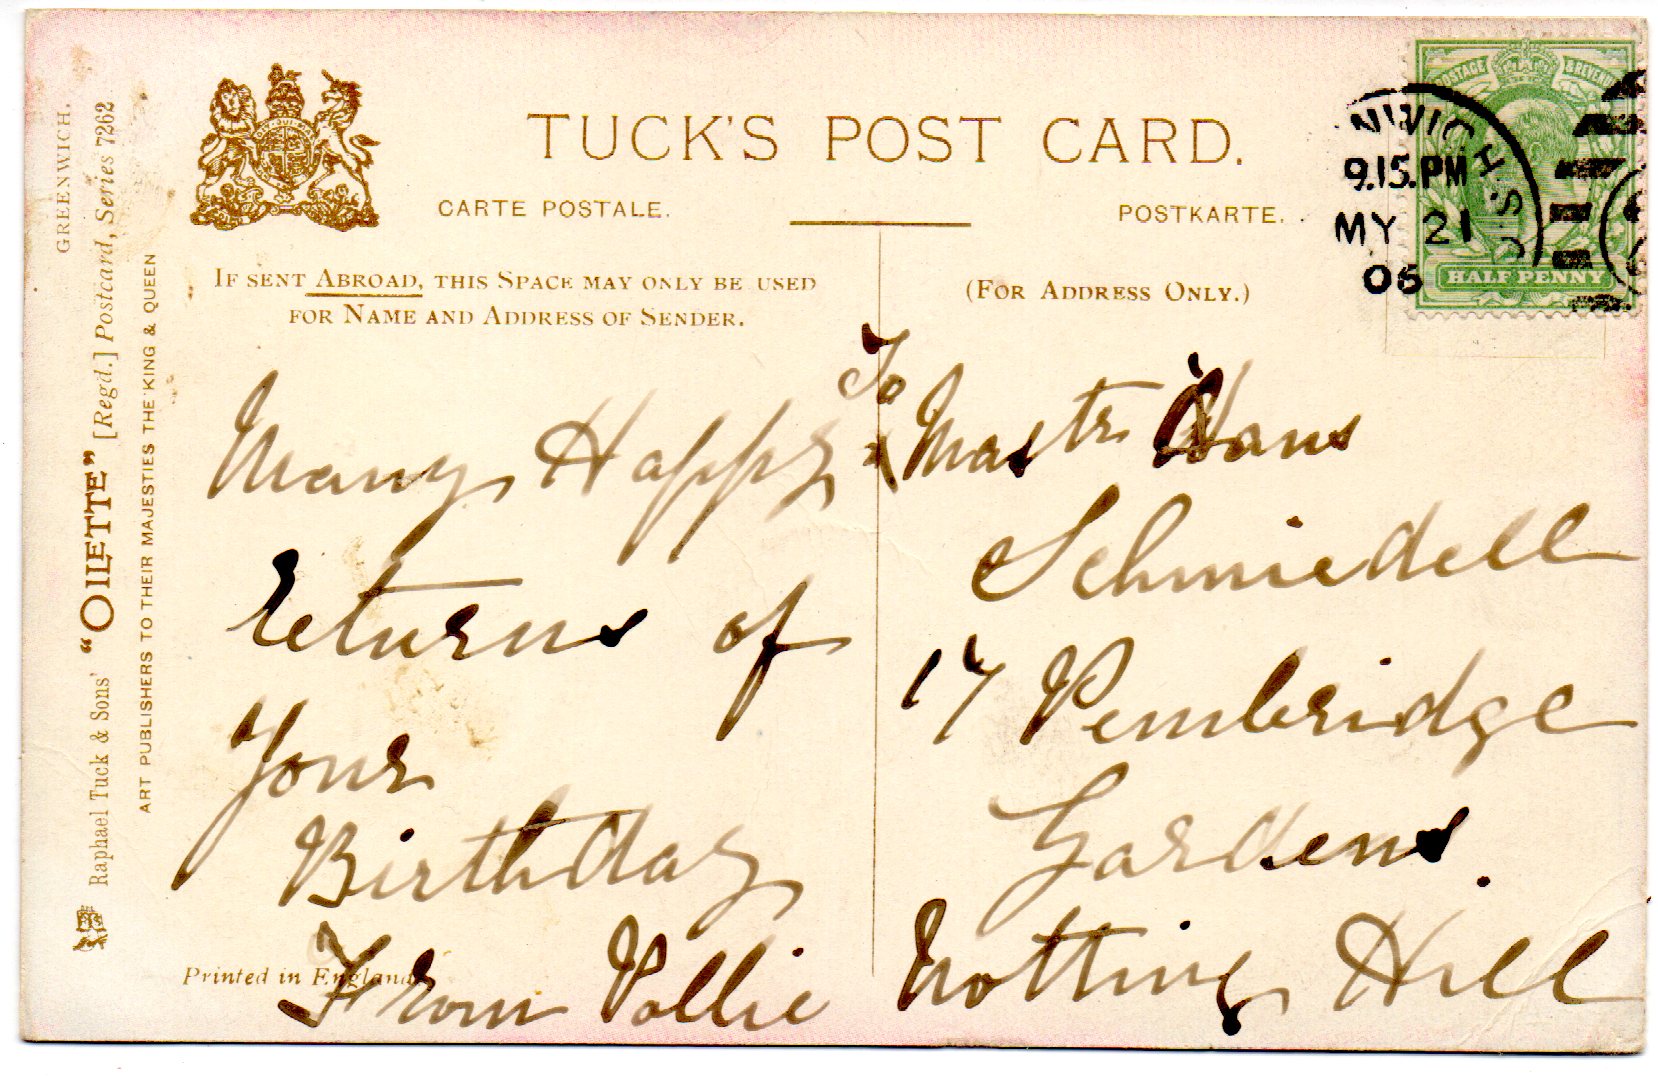 GREENWICH.
Raphael Tuck & Sons' "OILETTE" [Regd.] Postcard, Series 7262
ART PUBLISHERS TO THEIR MAJESTIES THE KING & QUEEN
TUCK'S POST CARD.
CARTE POSTALE.
POSTKARTE.
IF SENT ABROAD, THIS SPACE MAY ONLY BE USED
FOR NAME AND ADDRESS OF SENDER.
(FOR ADDRESS ONLY.)
POSTAGE & REVENUE
HALF PENNY
NWICH
S.O.
9.15.PM
MY 21
06
Many Happy
returns of
Your
Birthday
From Pollie
Printed in England
To
Mastr Hans
Schmiedell
17 Pembridge
Gardens.
Notting Hill